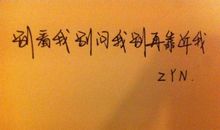 别看我别问我别再靠近我
ZYN.